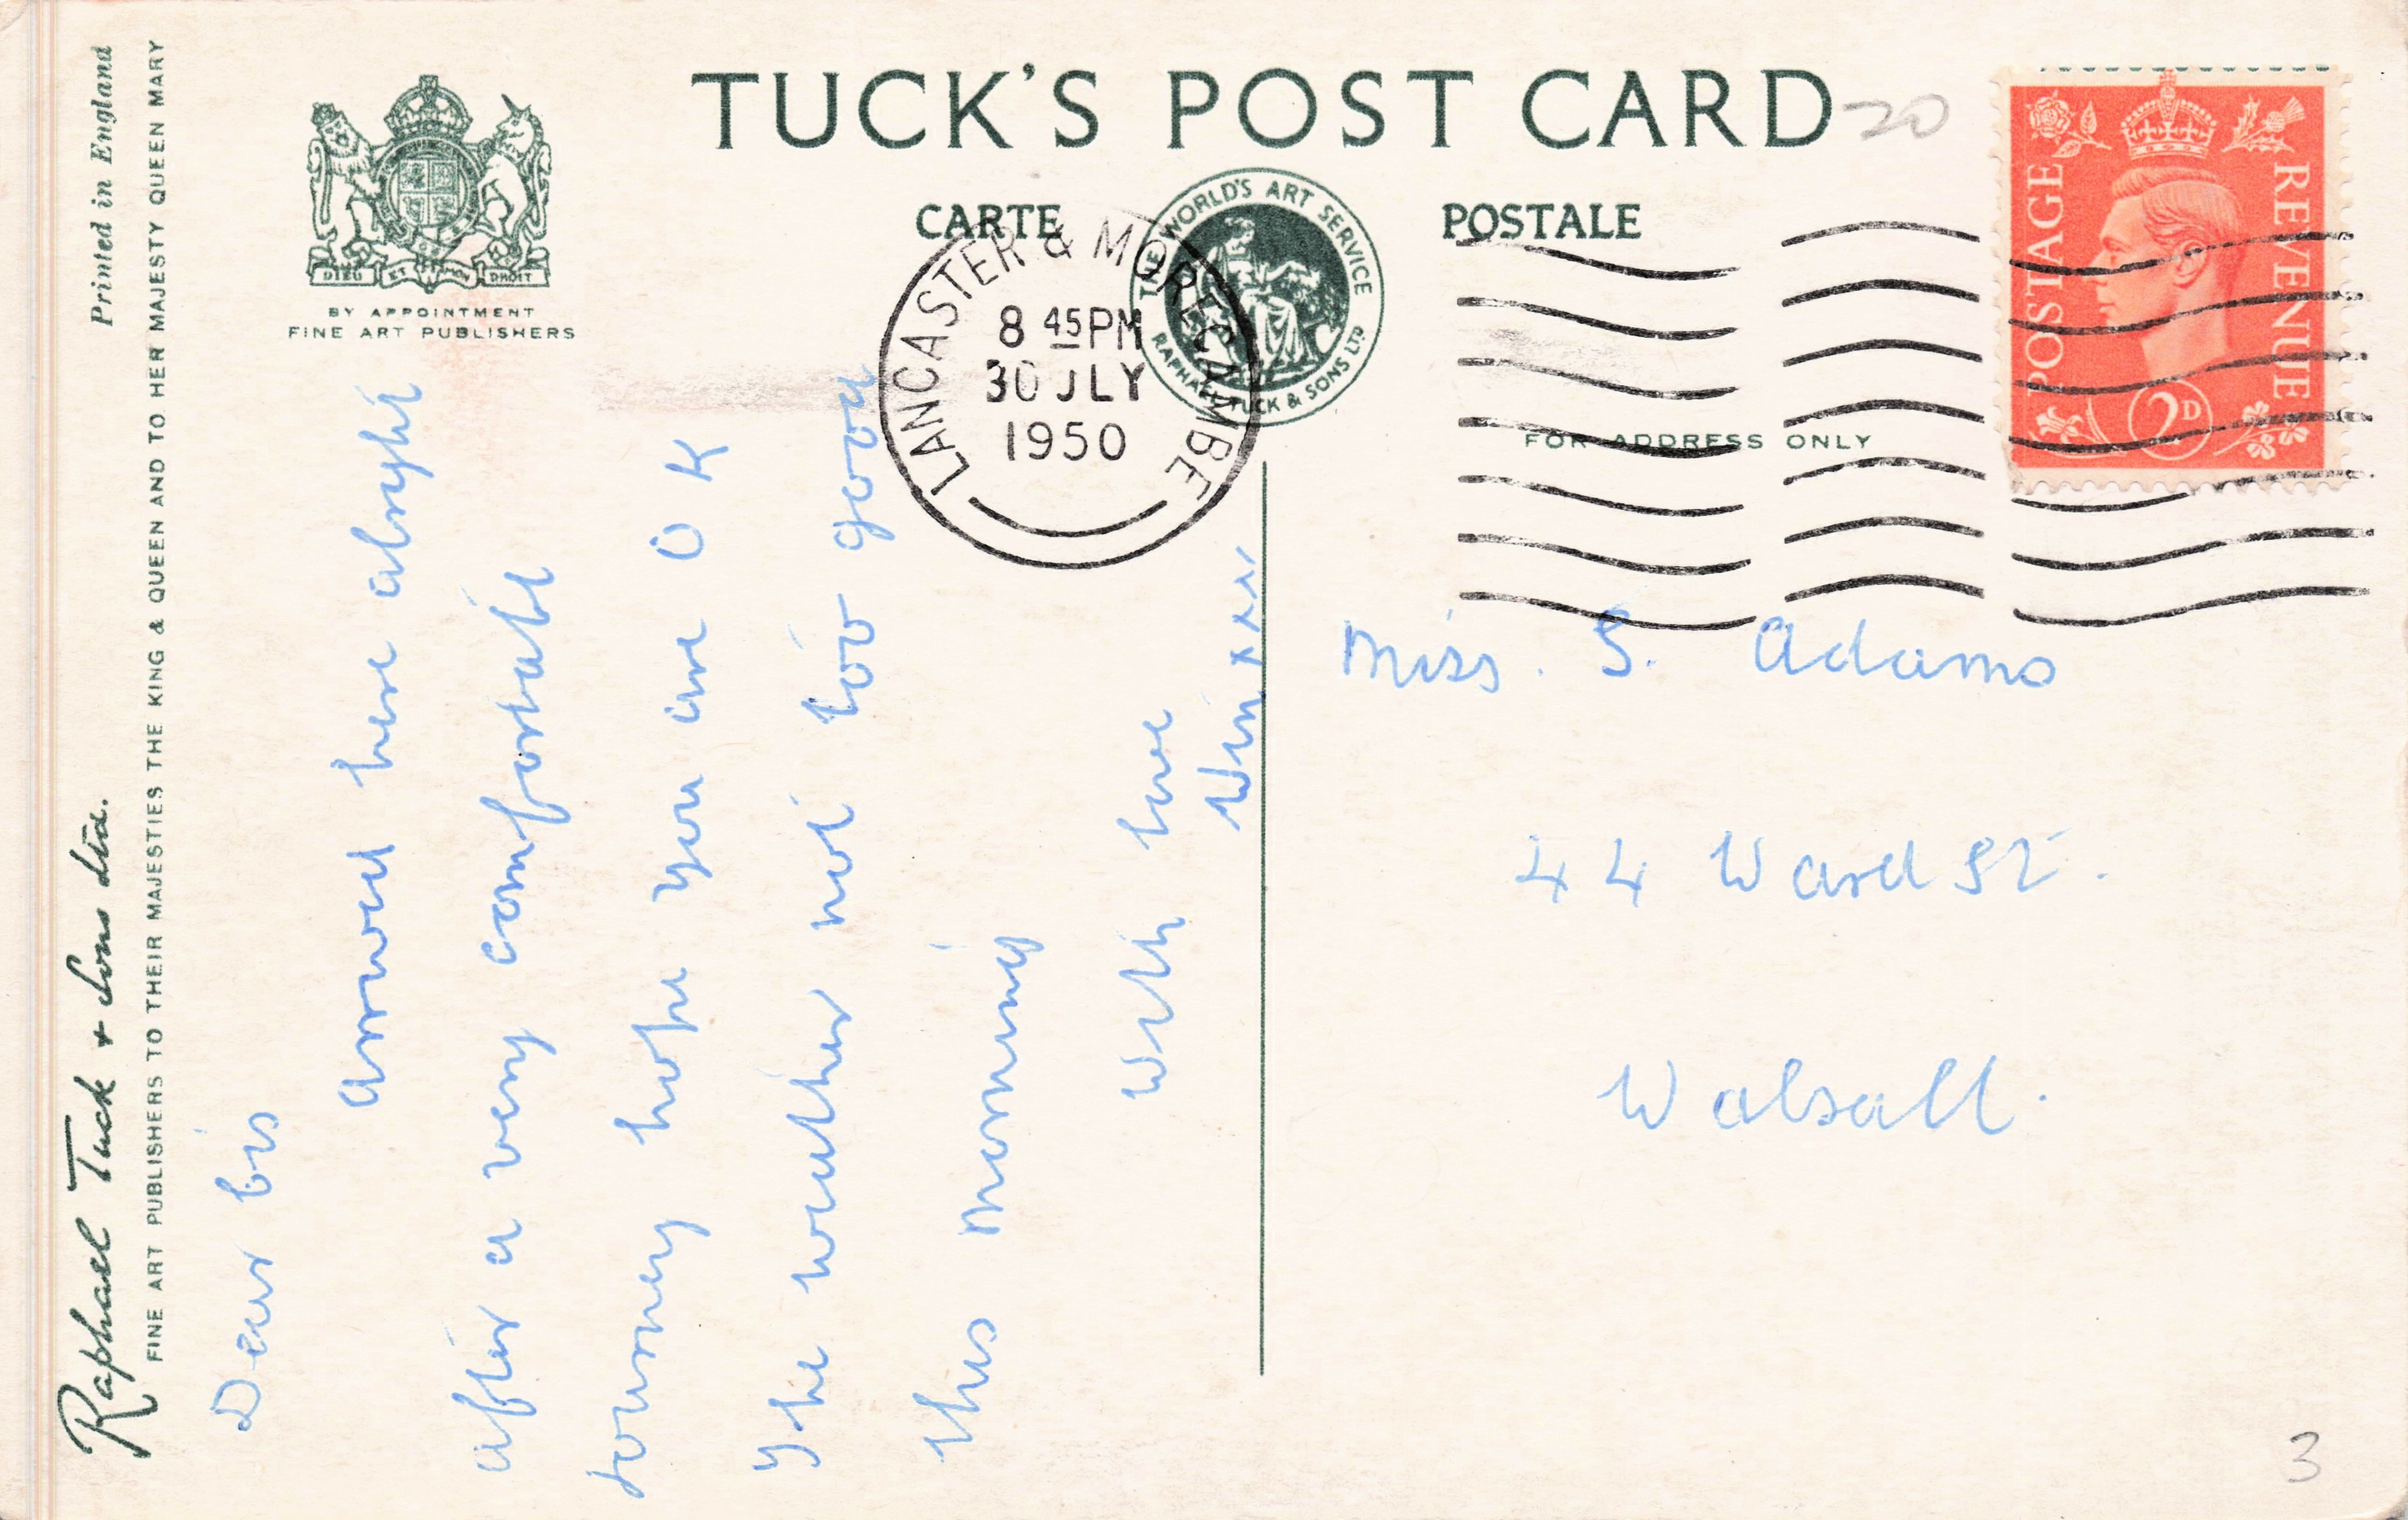 TUCK'S POST CARD
20
CARTE POSTALE
Printed in England
Raphael Tuck & Sons Ltd.
FINE ART PUBLISHERS TO THEIR MAJESTIES THE KING & QUEEN AND TO HER MAJESTY QUEEN MARY
DIEU ET MON DROIT
BY APPOINTMENT
FINE ART PUBLISHERS
THE WORLD'S ART SERVICE
RAPHAEL TUCK & SONS LTD
LANCASTER & MORECAMBE
8 45PM
30 JLY
1950
POSTAGE
REVENUE
2D
FOR ADDRESS ONLY
Dear
arrived here alright
after a very comfortable
journey hope you are O K
The weather not too good
this morning
with love
Win xxxx
Miss. S. Adams
44 Ward St.
Walsall.
3